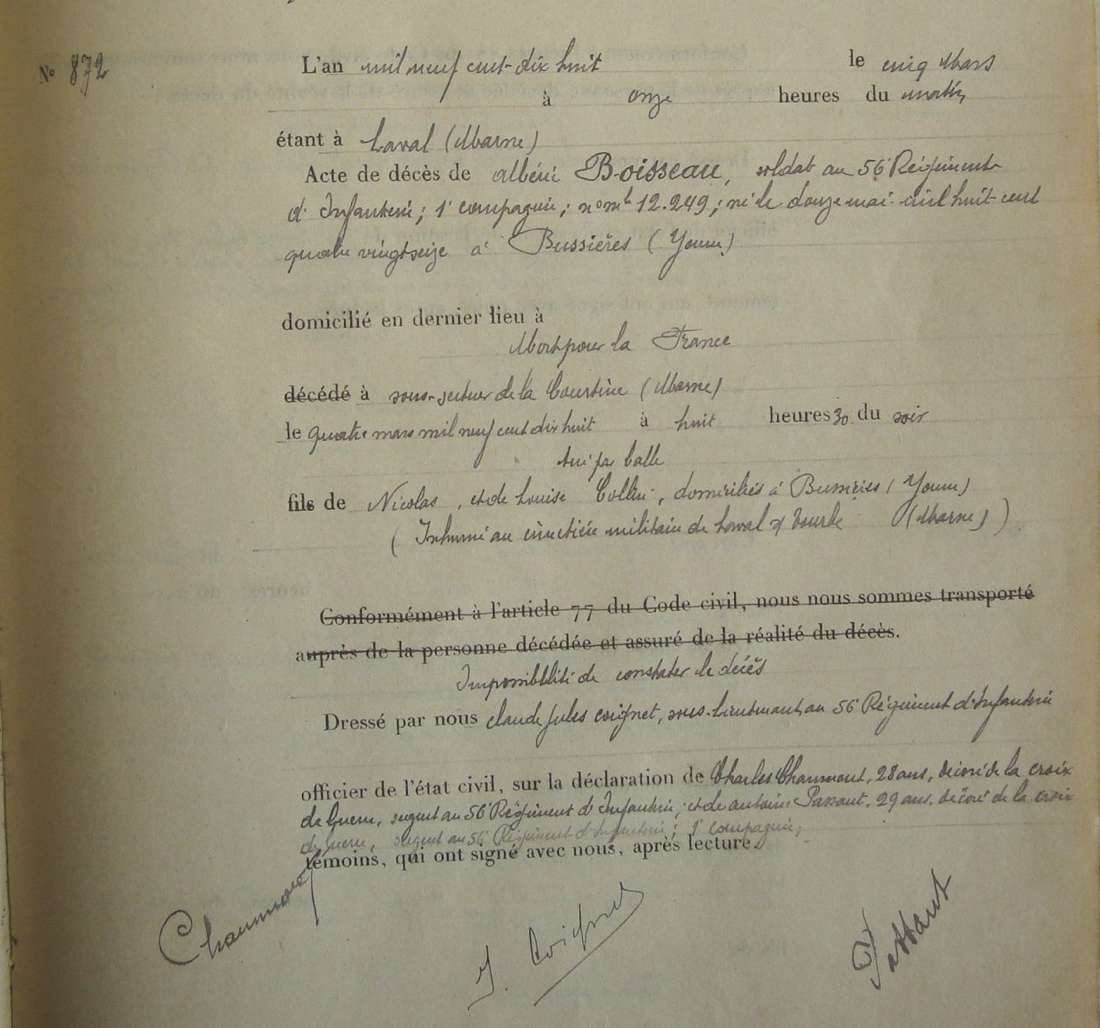 N° 872
L'an mil neuf cent-dix huit le cinq Mars
à onze heures du matin
étant à Laval (Marne)
Acte de décès de Albéric Boisseau, soldat au 56e Régiment
d'Infanterie; 1e compagnie; n° mle 12.249; né le douze mai mil huit cent
quatre vingt seize à Bussières (Yonne)
domicilié en dernier lieu à
Mort pour la France
décédé à sous-secteur de la Courtine (Marne)
le quatre mars mil neuf cent dix huit à huit heures 30 du soir
tué par balle
fils de Nicolas, et de Louise Collin, domiciliés à Bussières (Yonne)
(Inhumé au cimetière militaire de Laval s/ Tourbe (Marne))
Conformément à l'article 77 du Code civil, nous nous sommes transporté
auprès de la personne décédée et assuré de la réalité du décès.
Impossibilité de constater le décès
Dressé par nous Claude Jules Coignet, sous-lieutenant au 56e Régiment d'Infanterie
officier de l'état civil, sur la déclaration de Charles Chaumont, 28 ans, décoré de la croix
de Guerre, sergent au 56e Régiment d'Infanterie; et de Antoine 29 ans, décoré de la croix
de guerre, sergent au 56e Régiment d'Infanterie; 1e compagnie;
témoins, qui ont signé avec nous, après lecture.
Chaumont
J. Coignet